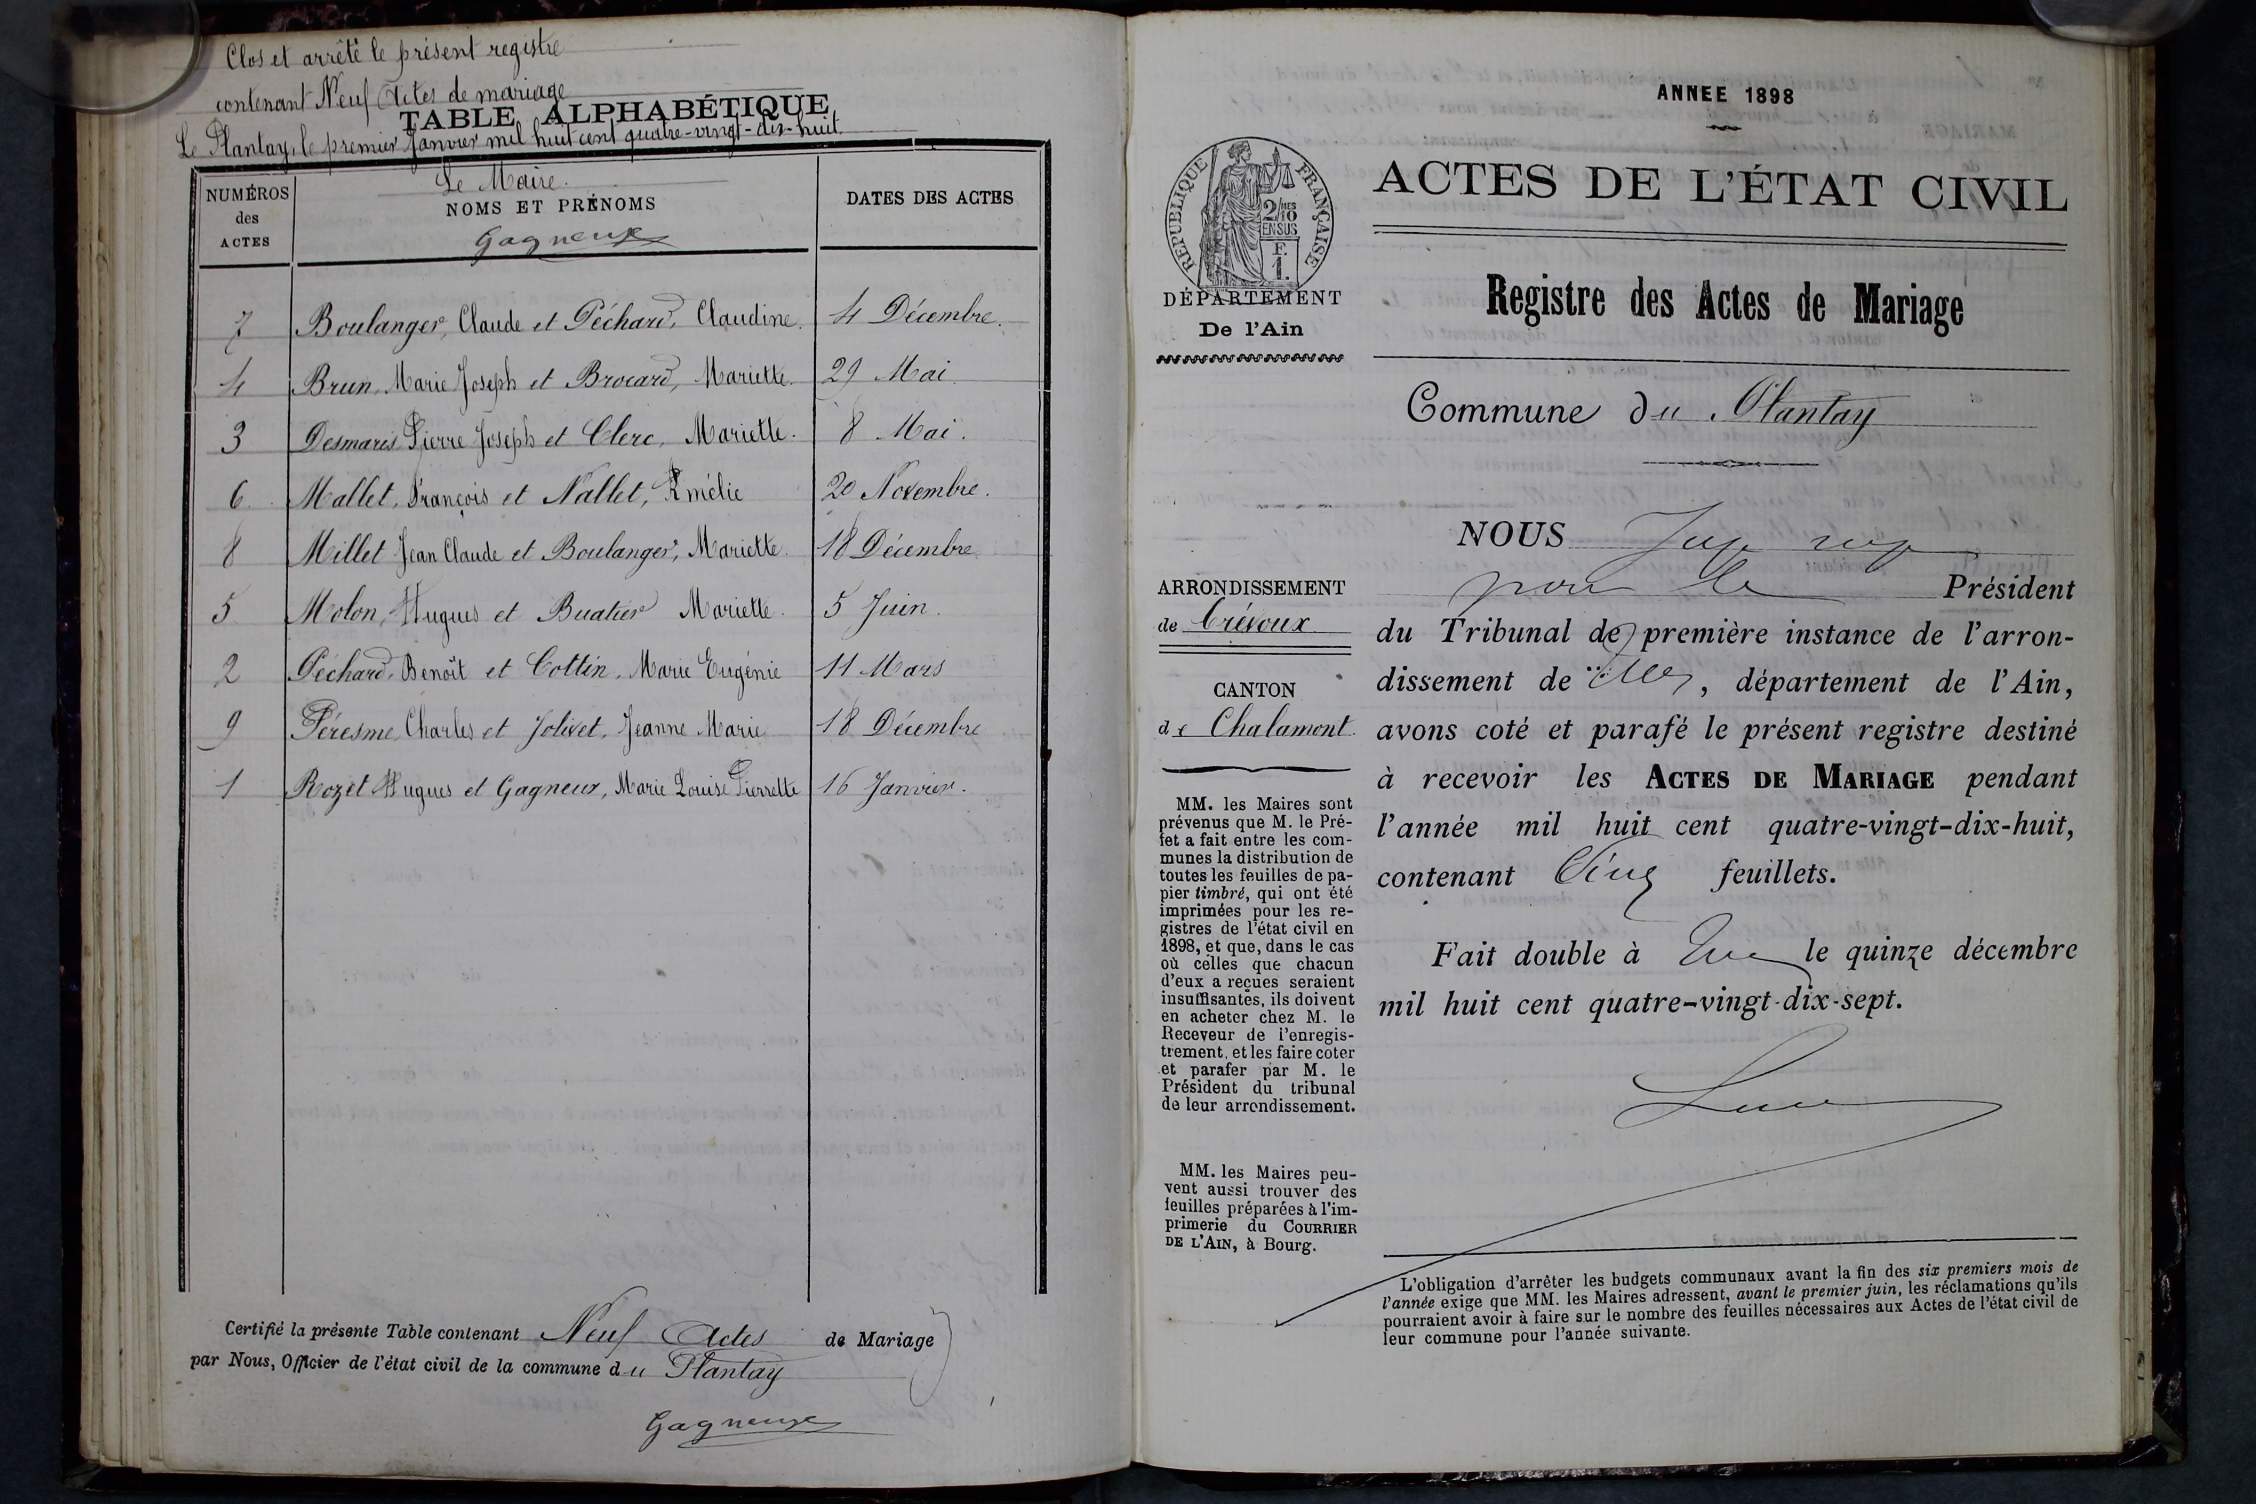 Clos et arrêté le présent registre
contenant Neuf Actes de mariage
TABLE ALPHABÉTIQUE
Le Plantay, le premier Janvier mil huit cent quatre-vingt-dix-huit.
Le Maire.
NUMÉROS des ACTES
NOMS ET PRÉNOMS
DATES DES ACTES
Gagneux
7 Boulanger, Claude et Péchard, Claudine. 4 Décembre.
4 Brun, Marie Joseph et Brocard, Mariette. 29 Mai.
3 Desmaris Pierre Joseph et Clerc, Mariette. 8 Mai.
6 Mallet, François et Nallet, Amélie 20 Novembre.
8 Millet Jean Claude et Boulanger, Mariette. 18 Décembre.
5 Molon, Hugues et Buatier Mariette. 5 Juin.
2 Péchard, Benoît et Cottin, Marie Eugénie 11 Mars
9 Péresme, Charles et Jolivet, Jeanne Marie 18 Décembre
1 Rozet Hugues et Gagneux, Marie Louise Pierrette 16 Janvier.
Certifié la présente Table contenant Neuf Actes de Mariage
par Nous, Officier de l'état civil de la commune du Plantay
Gagneux
ANNEE 1898
ACTES DE L'ÉTAT CIVIL
RÉPUBLIQUE FRANÇAISE
2/10 EN SUS
F.
1.
DÉPARTEMENT
De l'Ain
Registre des Actes de Mariage
Commune du Plantay
ARRONDISSEMENT
de Trévoux
CANTON
de Chalamont.
MM. les Maires sont
prévenus que M. le Pré-
fet a fait entre les com-
munes la distribution de
toutes les feuilles de pa-
pier timbré, qui ont été
imprimées pour les re-
gistres de l'état civil en
1898, et que, dans le cas
où celles que chacun
d'eux a reçues seraient
insuffisantes, ils doivent
en acheter chez M. le
Receveur de l'enregis-
trement, et les faire coter
et parafer par M. le
Président du tribunal
de leur arrondissement.
MM. les Maires peu-
vent aussi trouver des
feuilles préparées à l'im-
primerie du COURRIER
DE L'AIN, à Bourg.
NOUS
pour le Président
du Tribunal de première instance de l'arron-
dissement de , département de l'Ain,
avons coté et parafé le présent registre destiné
à recevoir les ACTES DE MARIAGE pendant
l'année mil huit cent quatre-vingt-dix-huit,
contenant Cinq feuillets.
Fait double à le quinze décembre
mil huit cent quatre-vingt-dix-sept.
L'obligation d'arrêter les budgets communaux avant la fin des six premiers mois de
l'année exige que MM. les Maires adressent, avant le premier juin, les réclamations qu'ils
pourraient avoir à faire sur le nombre des feuilles nécessaires aux Actes de l'état civil de
leur commune pour l'année suivante.